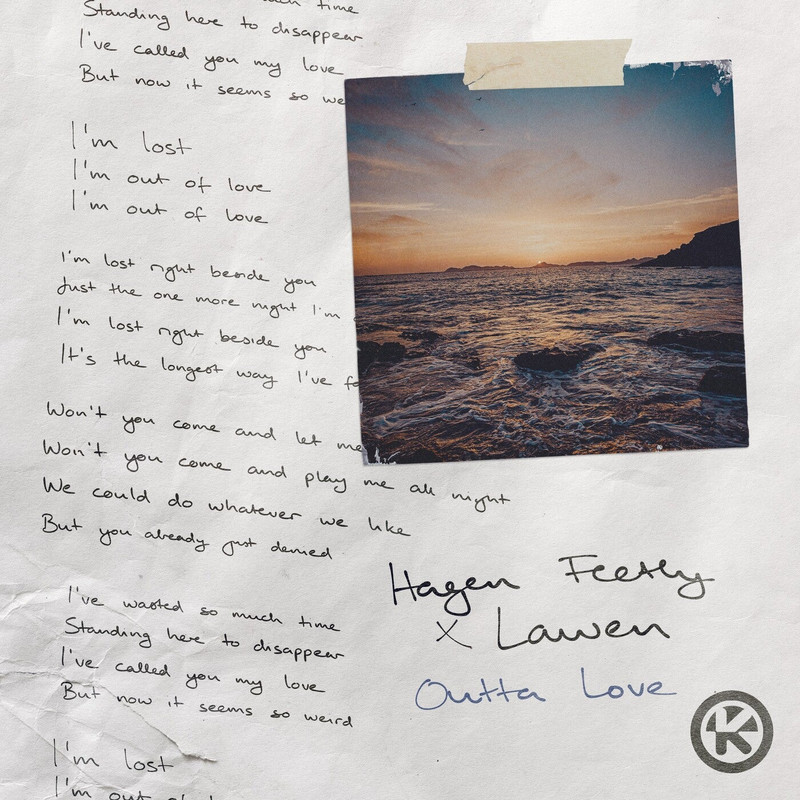 time
Standing here to disappear
I've called you my love
But now it seems so we
I'm lost
I'm out of love
I'm out of love
I'm lost right beside you
Just the one more night I'm
I'm lost right beside you
It's the longest way I've fo
Won't you come and let me
Won't you come and play me all night
We could do whatever we like
But you already just denied
I've wasted so much time
Standing here to disappear
I've called you my love
But now it seems so weird
I'm lost
I'm out of
Hagen Feetly
x Lawen
Outta Love
K